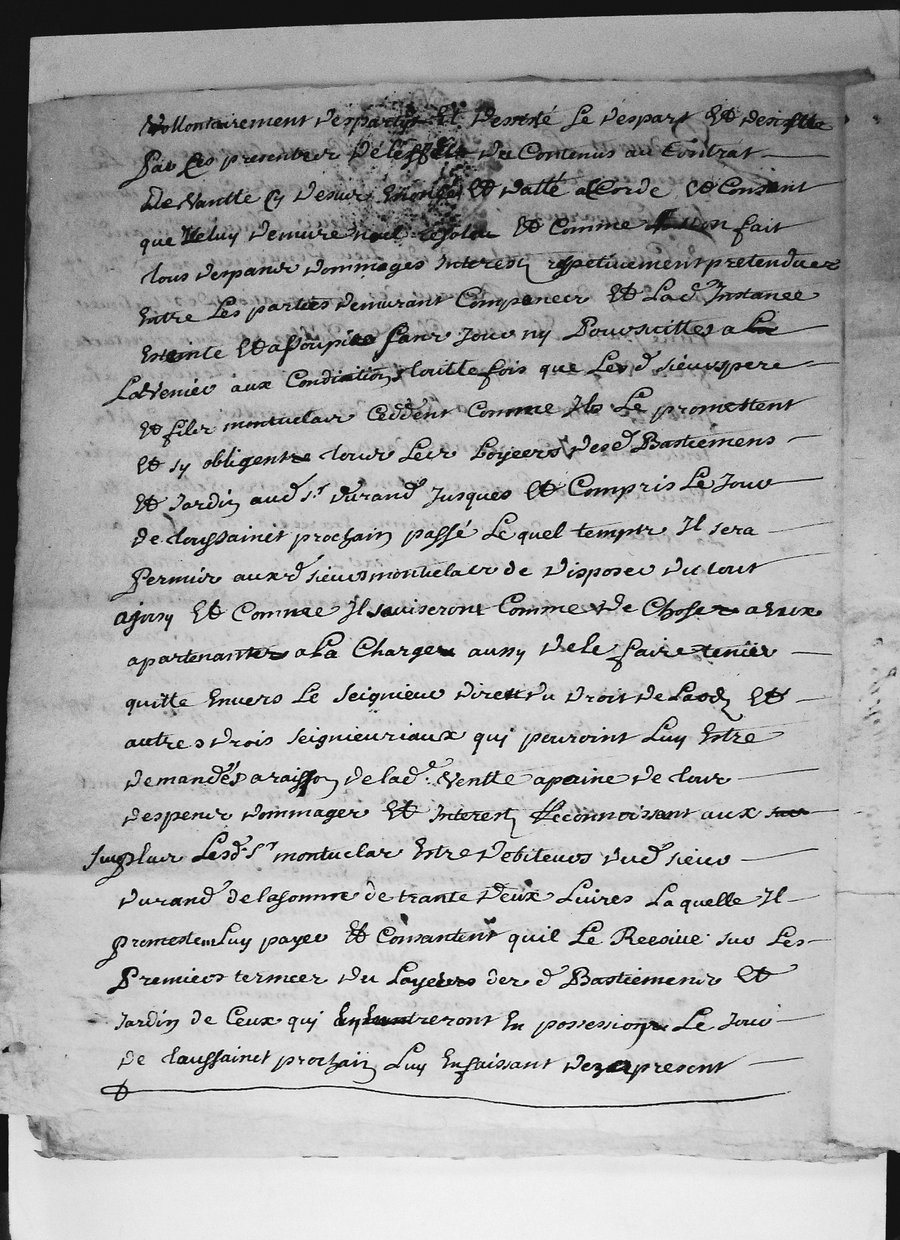 Vollontairement despartys Et Desisté Se despart Et desiste
Par Ces presentes De l'effect du Contenus au Contrat
De Vantte Cy Desus Enonsé Et datté acCorde Et Consant
que Iceluy Demure nul resolu Et Comme non fait
tous despans dommages Interest respetivement pretendues
Entre Les parties demurant Compancer Et Lad.e Instance
Esteinte Et assoupie sans Jour ny Pourscitte a La
LadVenier aux Condiation touttefois que Lesd sieurs pere
Et fils montuclar Ceddent Comme Ils Le promettent
Et sy obligentre tour Leur Loyeers desd Bastiemens
Et Jardin aud sr Durand Jusques Et Compris Le Jour
de toussainct prochain passé Le quel temps Il sera
Permis auxd sieurs montuclar de disposer du tout
ajnsy Et Comme Il saviseront Comme de Choses a Eux
apartenantes a La Charge aussy de le faire tenier
quitte Envers Le seignieur diret du droit de Laods Et
autres drois seignieuriaux qui pouroint Luy Estre
demandés a raisson de lad.e Ventte a paine de tour
despens dommages Et Interest Reconnoissant aux
surplus Lesd. srs montuclar Estre debiteurs dud sieur
durand de la somme de trante deux Livres La quelle Il
promestent Luy payer Et Consantent quil Le Resive sur Les
Premiers termes du Loyeers des d Bastiemens Et
Jardin de Ceux qui Entreront En possession Le Jour
de toussainct prochain Luy En faissant dez a present